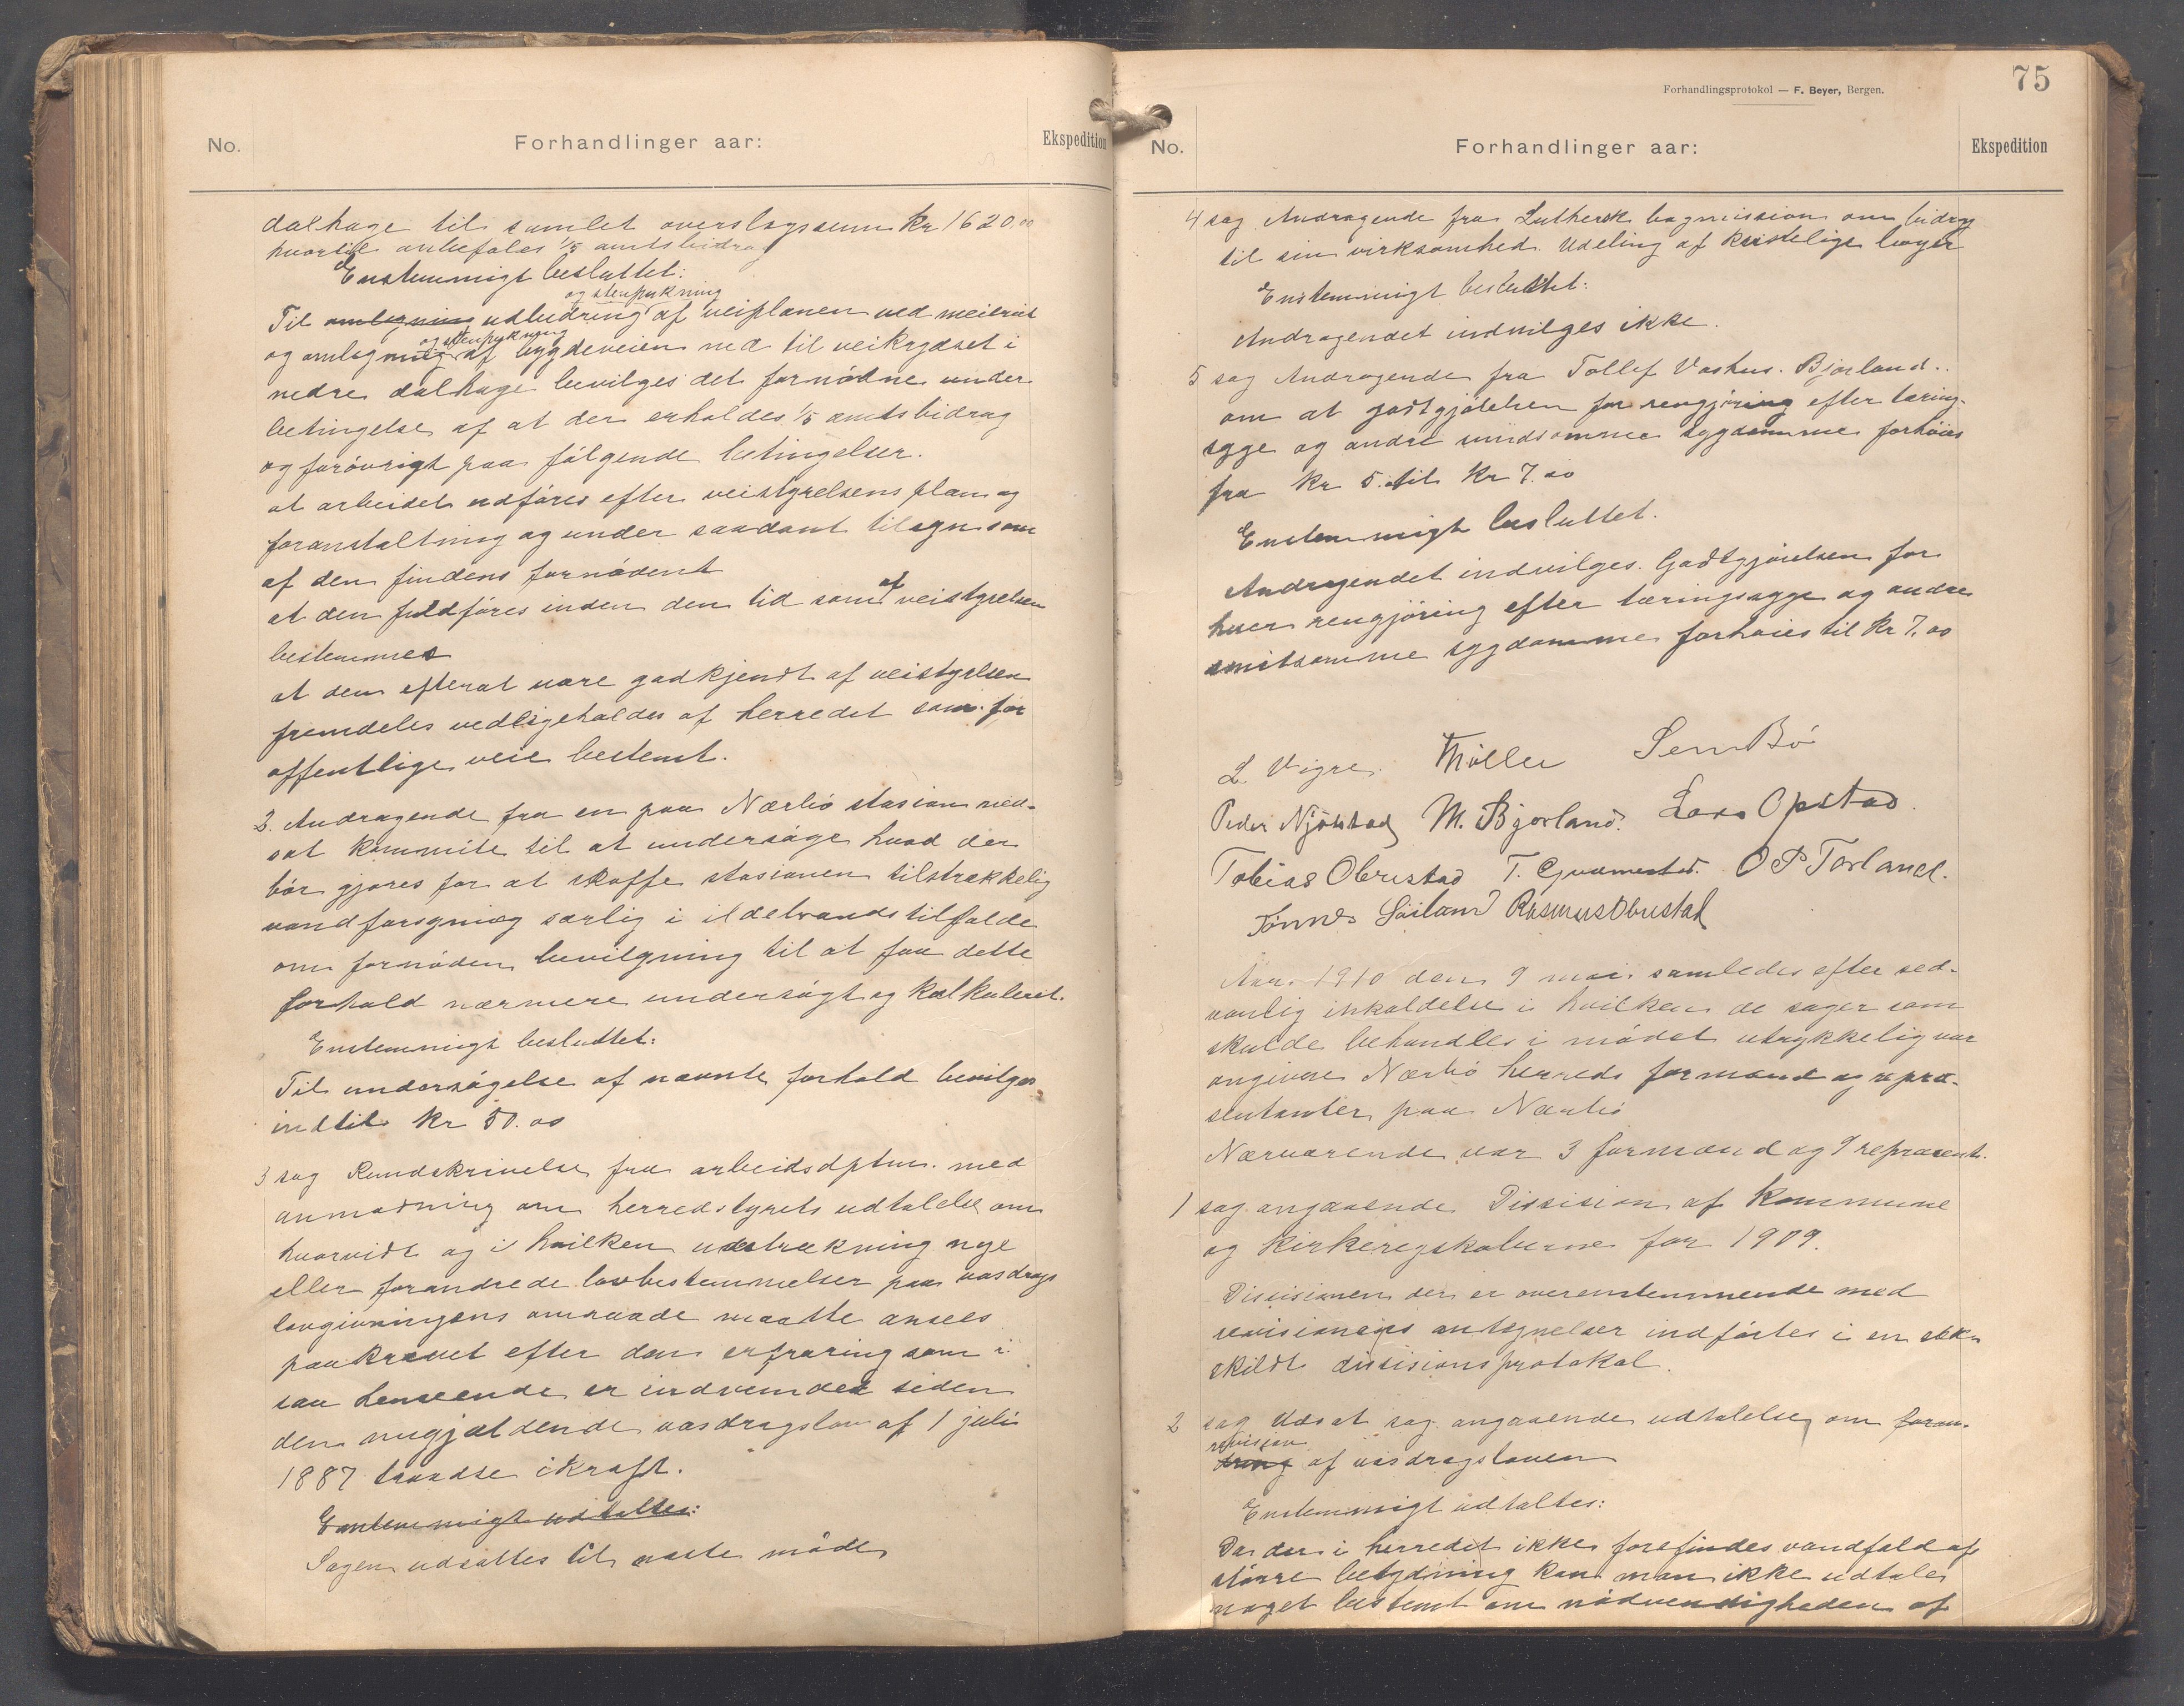 No.
Forhandlinger aar:
Ekspedition
dalhage til samlet overslagssum Kr 1620.00
hvortil anbefales 1/5 amtsbidrag
Enstemmigt besluttet:
og stenpukning
Til omlegning udbedring af veiplanen ved meieriet
og stenpukning
og omlegning af bygdeveien ned til veikrydset i
nedre dalhage bevilges det fornødne under
betingelse af at der erholdes 1/5 amtsbidrag
og forøvrigt paa følgende betingelser.
at arbeidet udføres efter veistyrelsens plan og
foranstaltning og under saadant tilsyn som
af den findens fornødent
at den fuldføres inden den tid som af veistyrelsen
bestemmes
at den efterat være godkjendt af veistyrelsen
fremdeles vedligeholdes af herredet som for
offentlige veie bestemt.
2. Andragende fra en paa Nærbø stasion ned-
sat kommite til at undersøge hvad der
bør gjøres for at skaffe stasionen tilstrækkelig
vandforsyning særlig i ildebrandstilfælde
om fornøden bevilgning til at faa dette
forhold nærmere undersøgt og kalkuleret.
Enstemmigt besluttet:
Til undersøgelse af nævnte forhold bevilges
indtil Kr 50.00
3 sag Rundskrivelse fra arbeidsdptm. med
anmodning om herredstyrets udtalelse om
hvorvidt og i hvilken udstrækning nye
eller forandrede lovbestemmelser paa vasdrags
lovgivningens omraade maatte ansees
paakrævet efter den erfraring som i
saa henseende er indvundet siden
den nugjældende vasdragslov af 1 juli
1887 traadte ikraft.
Enstemmigt udtaltes:
Sagen udsættes til næste møde
Forhandlingsprotokol — F. Beyer, Bergen.
75
No.
Forhandlinger aar:
Ekspedition
4 sag Andragende fra Luthersk bogmission om bidrag
til sin virksomhed. Udeling af kristelige bøger
Enstemmigt besluttet:
Andragendet indvilges ikke.
5 sag Andragende fra Tollef Vashus. Bjorland.
om at godtgjørelsen for rengjøring efter tæring-
syge og andre smidsomme sygdomme forhøies
fra Kr 5. til Kr 7.00
Enstemmigt besluttet.
Andragendet indvilges. Godtgjørelsen for
hver rengjøring efter tæringsyge og andre
smitsomme sygdomme forhøies til Kr 7.00
L. Vigre. Møller Sem Bø
Peder Njølstad M. Bjorland. Lars Opstad.
Tobias Obrestad T. Gudmestad. O P Torland.
Tønnes Søiland Rasmus Obrestad
Aar. 1910 den 9 mai samledes efter sed-
vanlig inkaldelse i hvilken de sager som
skulde behandles i mødet utrykkelig var
angivne Nærbø herreds formænd og repræ-
sentanter paa Nærbø
Nærværende var 3 formænd og 9 repræsent.
1 sag angaaende Dissision af Kommune
og Kirkeregskaberne for 1909.
Dissisionen der er overenstemmende med
revisionens antegnelser indførtes i en sær
skildt dissisionsprotokol.
2 sag Udsat sag angaaende udtalelse om foran-
revision
dring af vasdragsloven
Enstemmigt udtaltes:
Da der i herredet ikke forefindes vandfald af
større betydning kan man ikke udtale
noget bestemt om nødvendigheden af